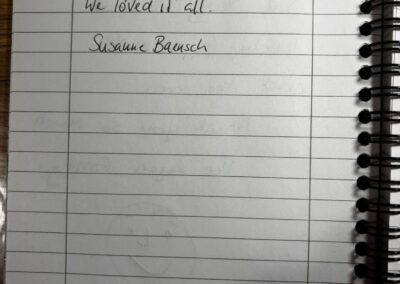 We loved it all.
Susanne Baensch